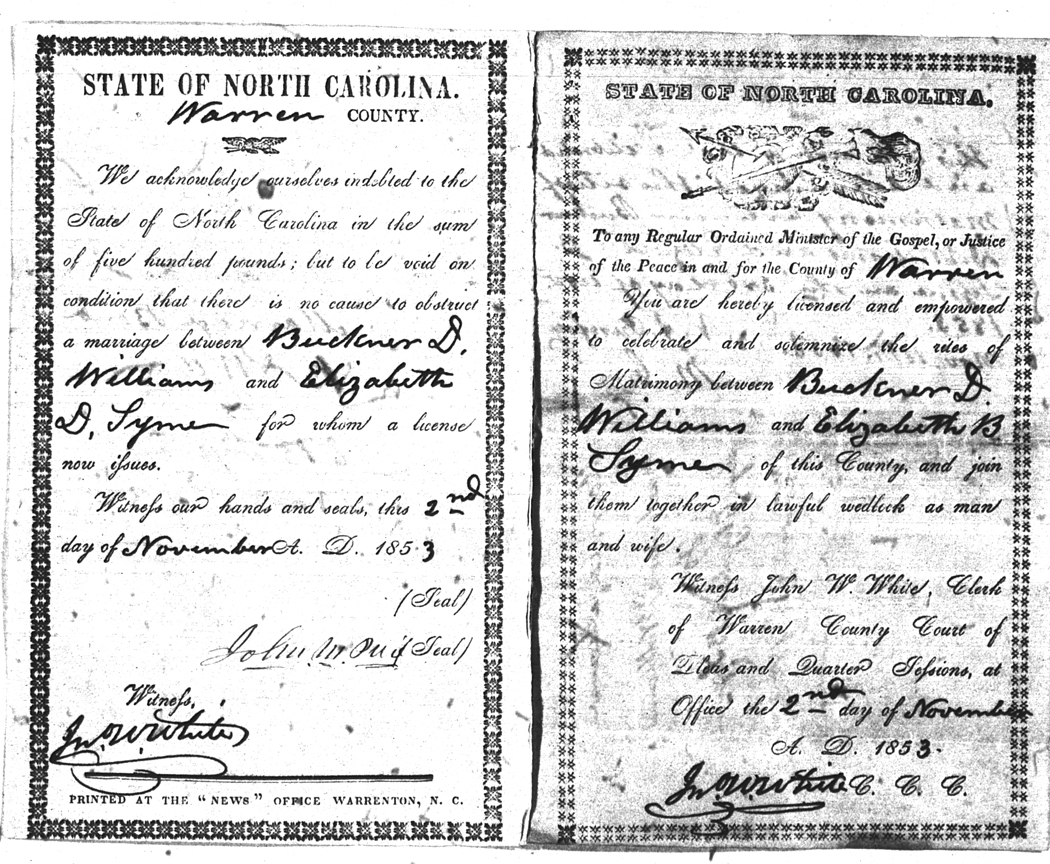 STATE OF NORTH CAROLINA.
Warren COUNTY.
We acknowledge ourselves indebted to the
State of North Carolina in the sum
of five hundred pounds; but to be void on
condition that there is no cause to obstruct
a marriage between Buckner D.
Williams and Elizabeth
D. Syme for whom a license
now issues.
Witness our hands and seals, this 2nd
day of November A. D. 1853
(Seal)
John M. (Seal)
Witness,
Jn. W. White
PRINTED AT THE "NEWS" OFFICE WARRENTON, N. C.
STATE OF NORTH CAROLINA.
To any Regular Ordained Minister of the Gospel, or Justice
of the Peace in and for the County of Warren
You are hereby licensed and empowered
to celebrate and solemnize the rites of
Matrimony between Buckner D.
Williams and Elizabeth B
Syme of this County, and join
them together in lawful wedlock as man
and wife.
Witness John W. White, Clerk
of Warren County Court of
Pleas and Quarter Sessions, at
Office the 2nd day of November
A. D. 1853.
Jn. W. White C. C. C.